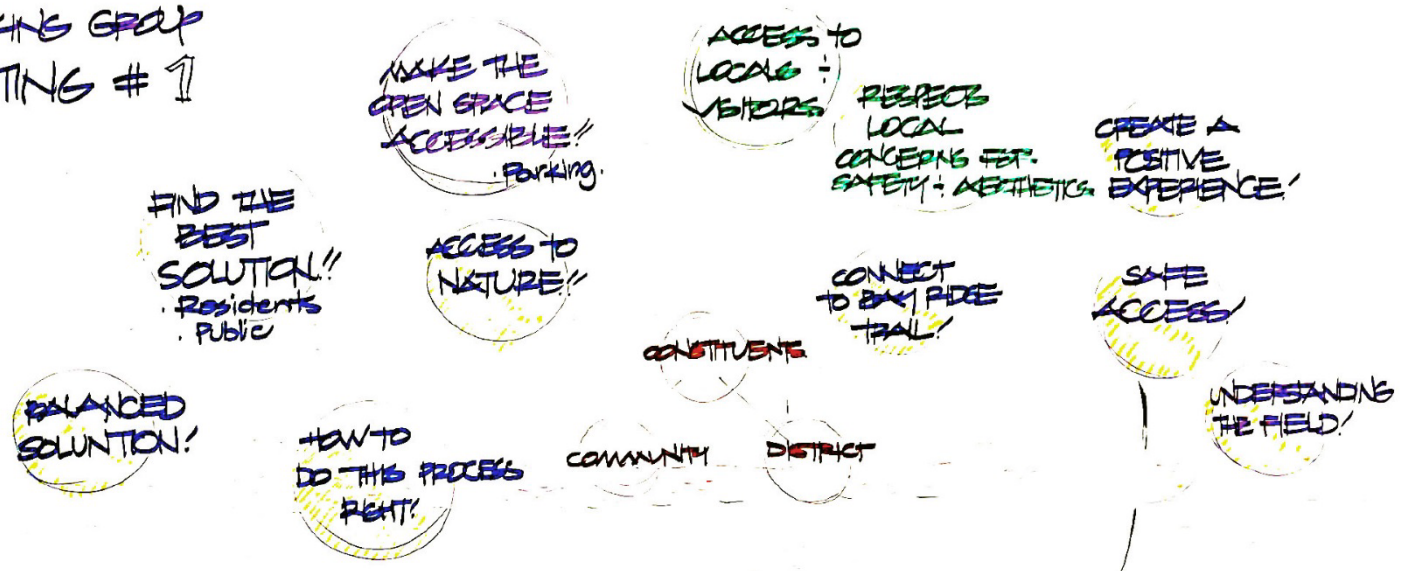 KING GROUP
TING # 1
MAKE THE
OPEN SPACE
ACCESSIBLE!!
· Parking.
ACCESS TO
LOCALS +
VISITORS
RESPECTS
LOCAL
CONCERNS FOR.
SAFETY + AESTHETICS.
CREATE A
POSITIVE
EXPERIENCE!
FIND THE
BEST
SOLUTION!!
· Residents
· Public
ACCESS TO
NATURE!!
CONNECT
TO BAY RIDGE
TRAIL!
SAFE
ACCESS!
CONSTITUENTS.
COMMUNITY
DISTRICT
BALANCED
SOLUNTION!
HOW TO
DO THIS PROCESS
RIGHT!
UNDERSTANDING
THE FIELD!